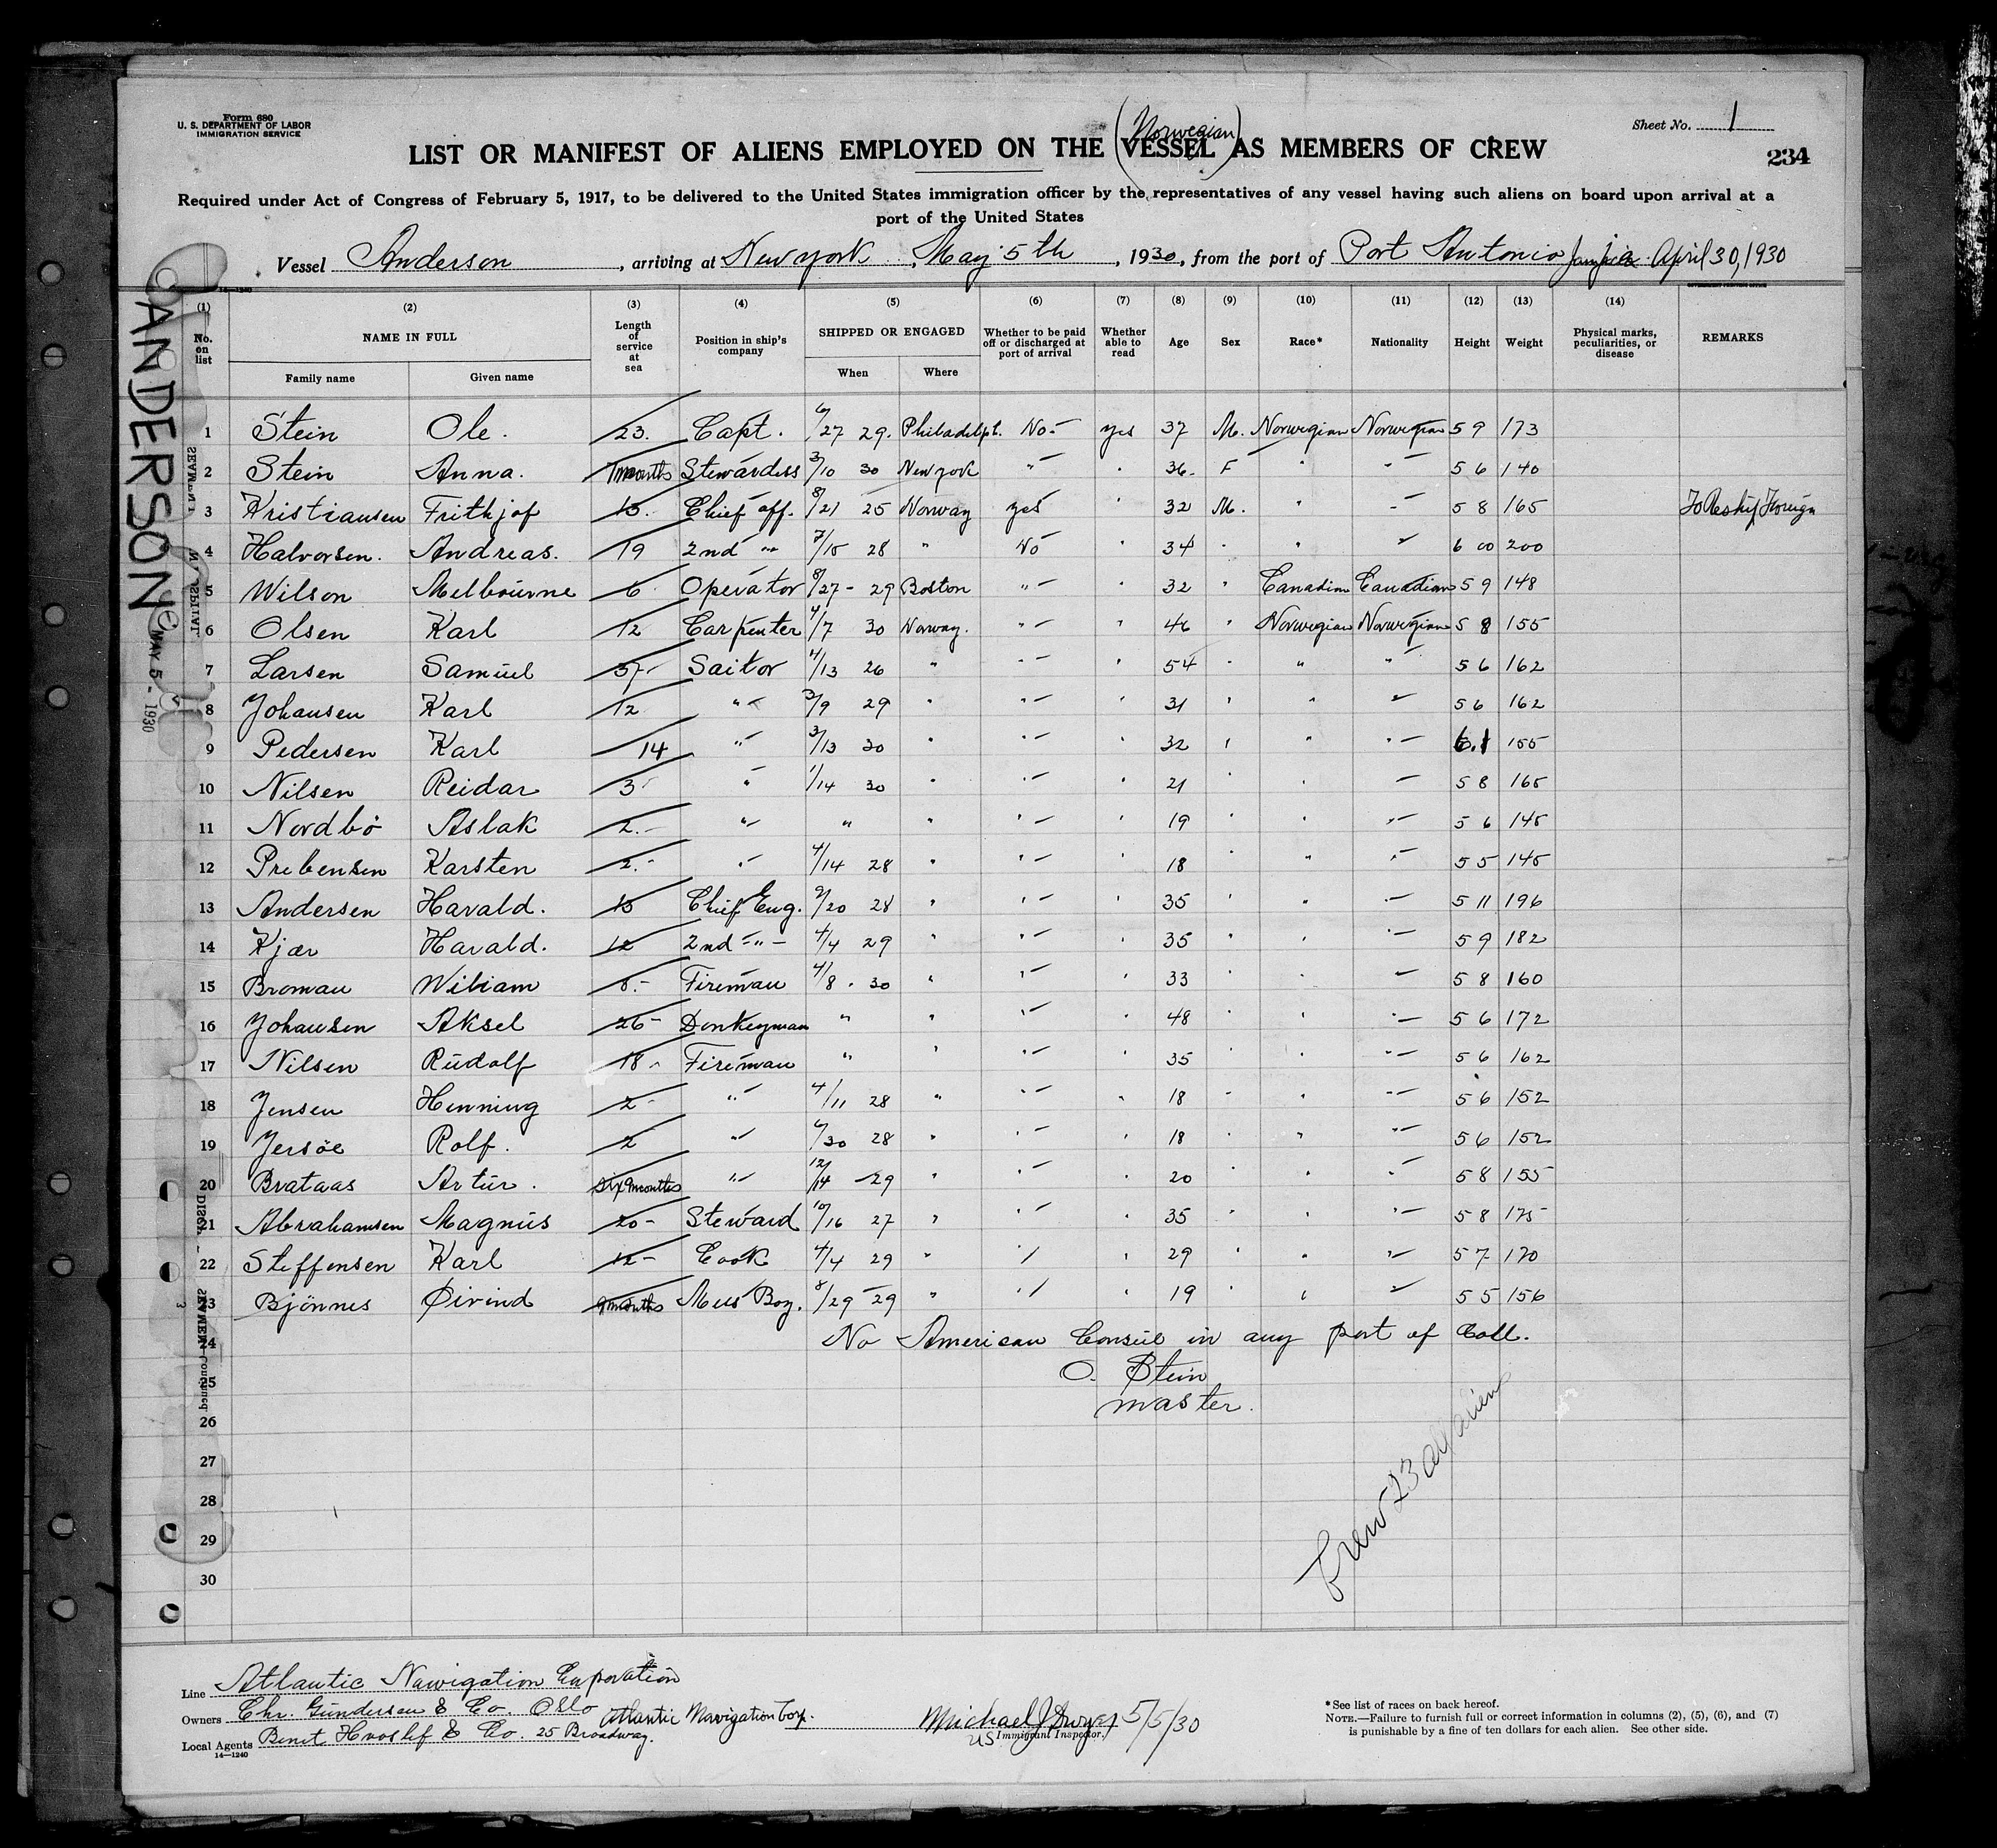 Form 680
U. S. DEPARTMENT OF LABOR
IMMIGRATION SERVICE
Sheet No. 1
(Norwegian)
LIST OR MANIFEST OF ALIENS EMPLOYED ON THE VESSEL AS MEMBERS OF CREW
234
Required under Act of Congress of February 5, 1917, to be delivered to the United States immigration officer by the representatives of any vessel having such aliens on board upon arrival at a
port of the United States
Vessel Anderson, arriving at New york, May 5th, 1930, from the port of Port Antonio Jamaica April 30, 1930
14—1240
(1) (2) (3) (4) (5) (6) (7) (8) (9) (10) (11) (12) (13) (14)
No. on list NAME IN FULL Length of service at sea Position in ship's company SHIPPED OR ENGAGED Whether to be paid off or discharged at port of arrival Whether able to read Age Sex Race* Nationality Height Weight Physical marks, peculiarities, or disease REMARKS
Family name Given name When Where
1 Stein Ole. 23. Capt. 6/27 29. Philadelph. No - yes 37 M. Norwegian Norwegian 5 9 173
2 Stein Anna. 1 months Stewardess 3/10 30 New york " - " 36 - F " " - 5 6 140
3 Kristiansen Frithjof 13. Chief off. 8/21 25 Norway yes " 32 M. " - 5 8 165 To Reship Foreign
4 Halvorsen. Andreas. 19 2nd " 7/15 28 " No " 34 " " " 6 00 200
5 Wilson Melbourne 6 Operator 8/27 - 29 Boston " - " 32 " Canadian Canadian 5 9 148
6 Olsen Karl 12 Carpenter 4/7 30 Norway. " - " 46 " Norwegian Norwegian 5 8 155
7 Larsen Samuel 37 - Sailor 4/13 26 " " - " 54 " " " 5 6 162
8 Johansen Karl 12 " 3/9 29 " " - " 31 " " " 5 6 162
9 Pedersen Karl 14 " 3/13 30 " " - " 32 " " " - 6.1 155
10 Nilsen Reidar 3 " 1/14 30 " " - " 21 " " - 5 8 165
11 Nordbö Aslak 2. - " " " " - " 19 " " " - 5 6 145
12 Prebensen Karsten 2. - " 4/14 28 " " - " 18 " " " - 5 5 145
13 Andersen Harald. 15 Chief Eng. 9/20 28 " " - " 35 " " " - 5 11 196
14 Kjær Harald. 12 2nd - " - 4/4 29 " " - " 35 " " " - 5 9 182
15 Broman William 8. - Fireman 4/8 . 30 " " - " 33 " " " - 5 8 160
16 Johansen Aksel 26 - Donkeyman " " " - " 48 " " " - 5 6 172
17 Nilsen Rudolf 18 - Fireman " " " - " 35 " " " - 5 6 162
18 Jensen Henning 2 - " 4/11 28 " " - " 18 " " " - 5 6 152
19 Jersöe Rolf. 2 " 6/30 28 " " - " 18 " " " - 5 6 152
20 Brataas Artur. Six months " 12/14 - 29 " " - " 20 " " " - 5 8 155
21 Abrahamsen Magnus 20 - Steward 10/16 27 " " - " 35 " " " - 5 8 175
22 Steffensen Karl 12 - Cook 4/4 29 " " " 29 " " " - 5 7 170
23 Bjönnes Øivind 9 months Mess Boy. 8/29 - 29 " " " 19 " " " 5 5 156
24 No American Consul in any port of Call.
25 O. Stein
26 master.
27
28
29
30
Crew 23 all aliens
ANDERSON
MAY 5 - 1930
Line Atlantic Nawigation Corporation
Owners Chr. Gundersen & Co. Oslo Atlantic Navigation Corp.
Local Agents Benet Hvoslef & Co. 25 Broadway.
14—1240
Michael J Dwyer 5/5/30
US Immigrant Inspector.
*See list of races on back hereof.
NOTE.—Failure to furnish full or correct information in columns (2), (5), (6), and (7)
is punishable by a fine of ten dollars for each alien. See other side.